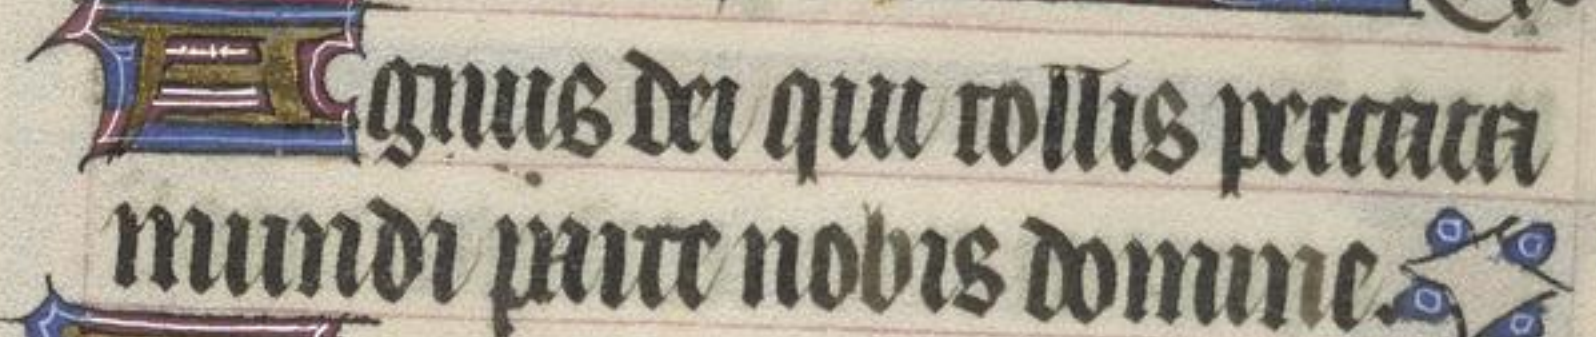 Agnus dei qui tollis peccata
mundi parce nobis domine.